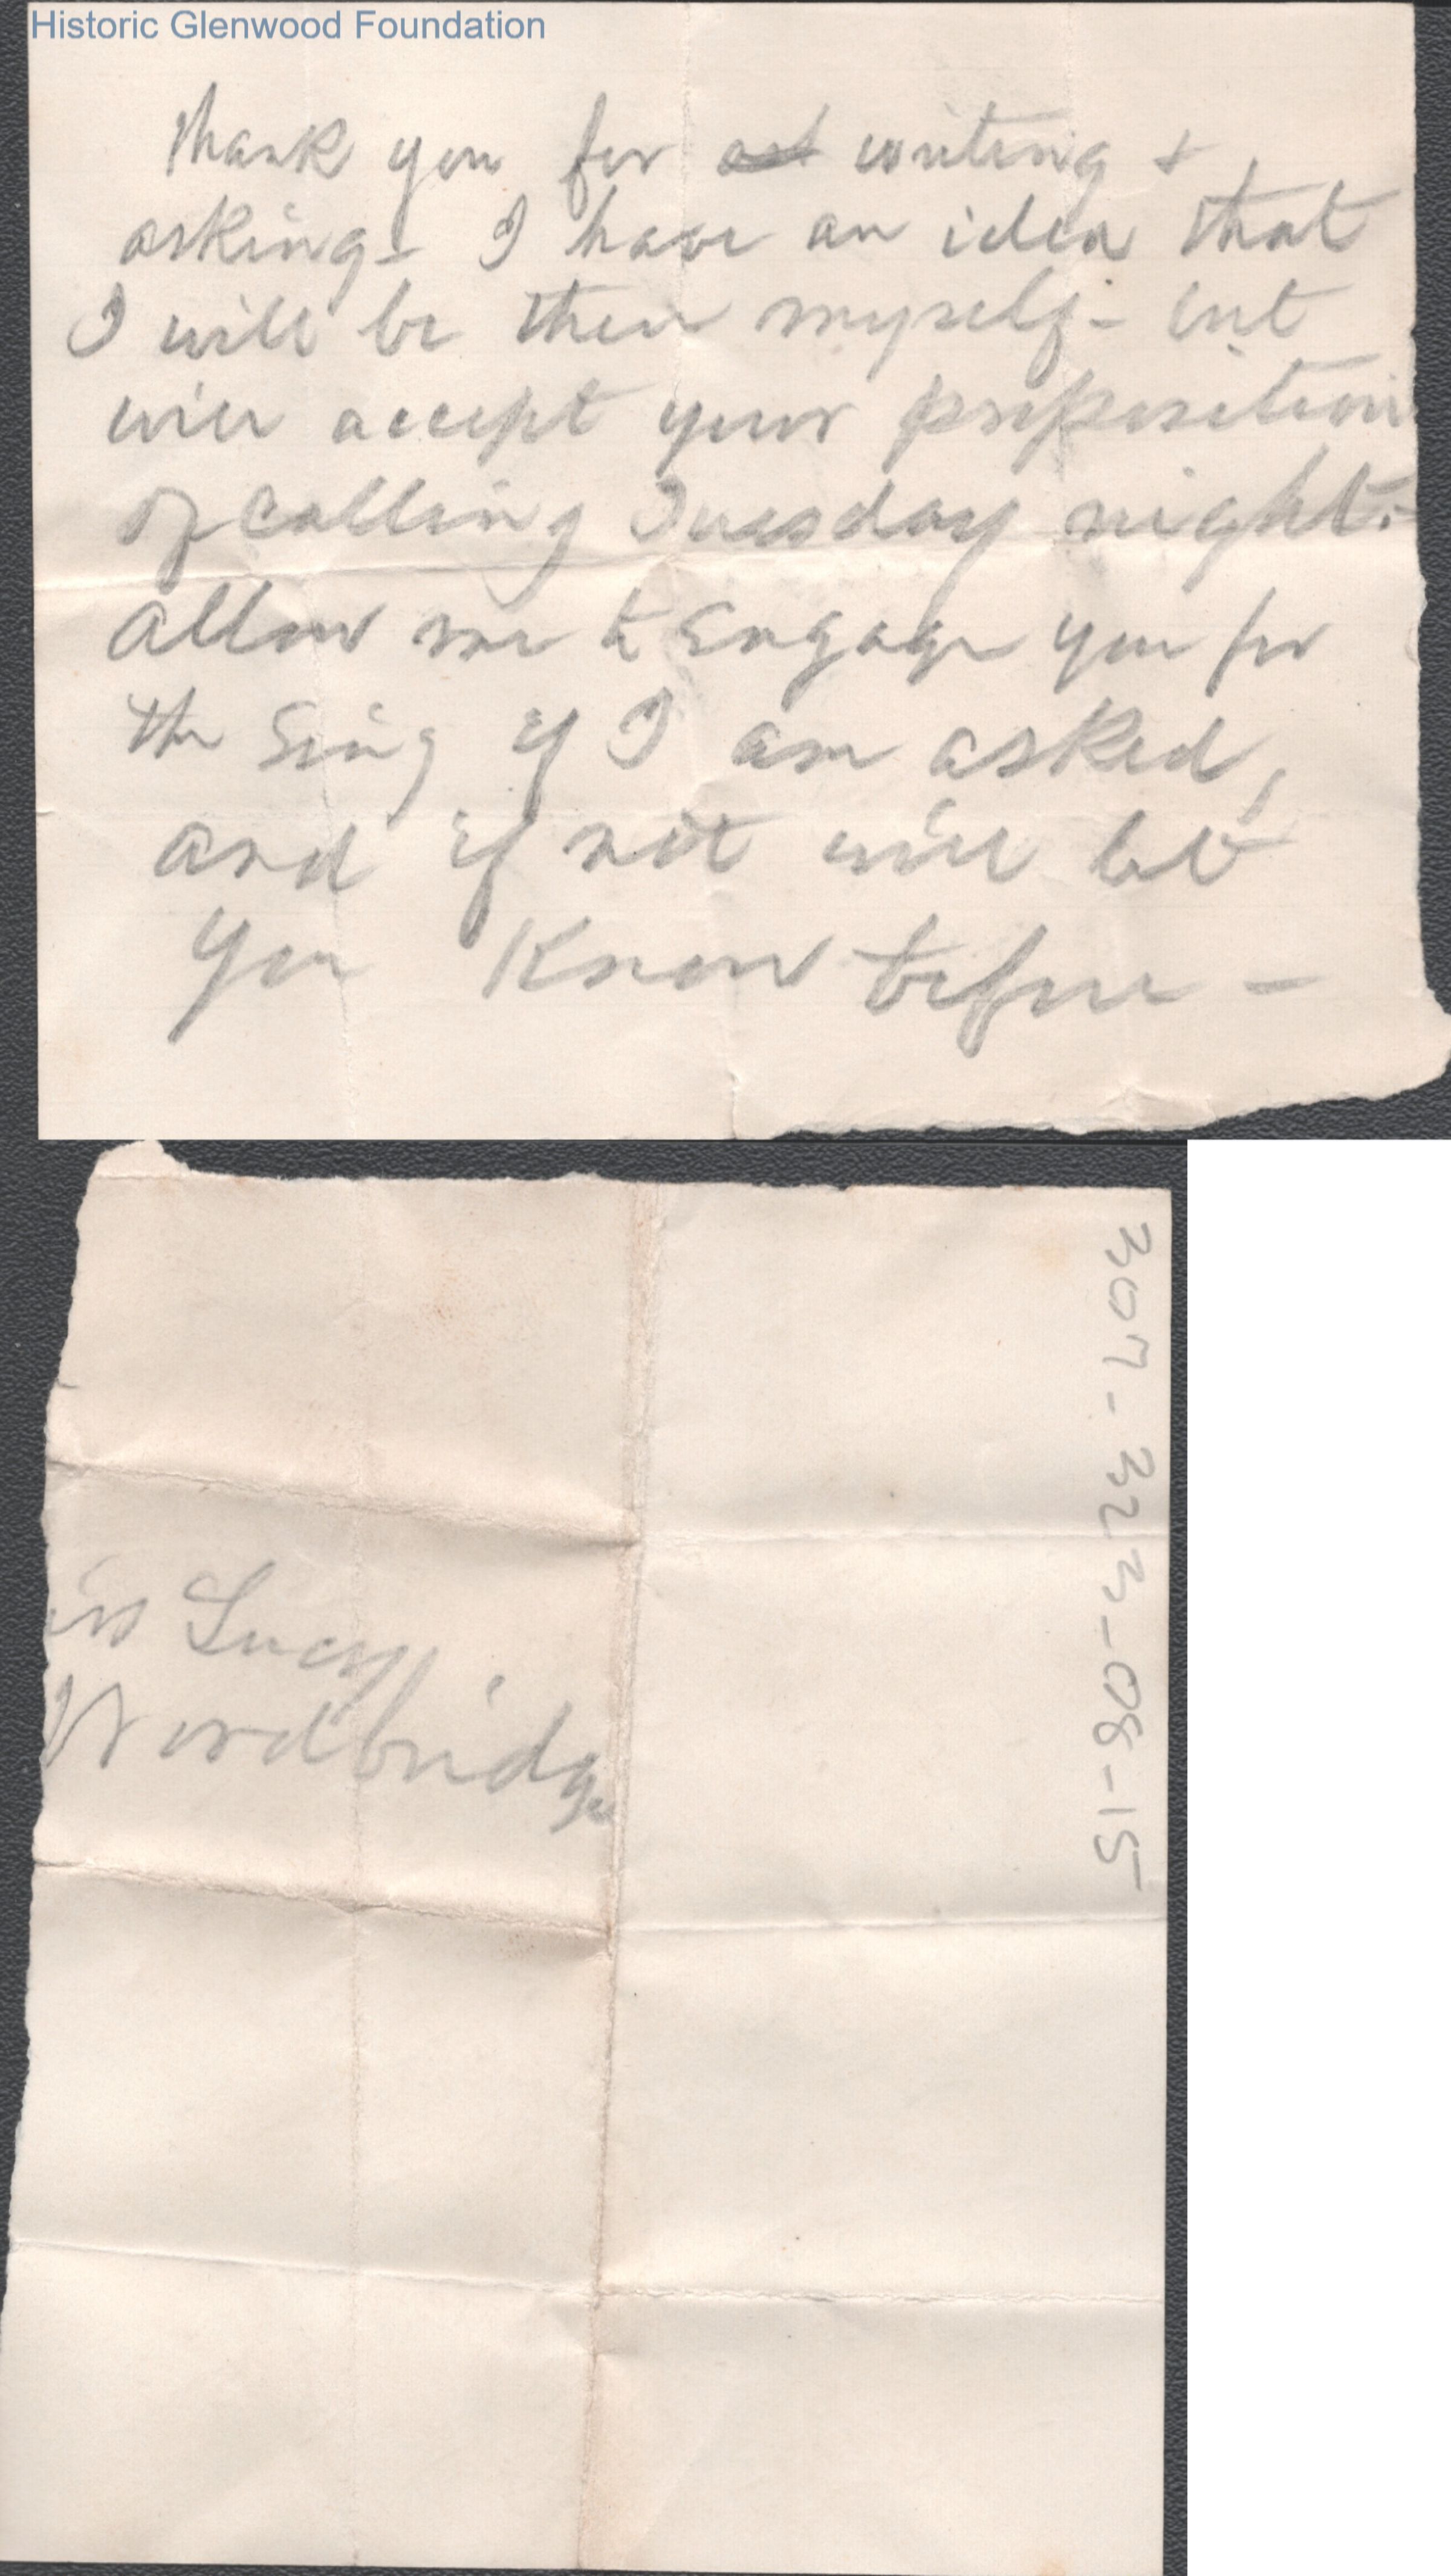 Historic Glenwood Foundation
Thank you for ask writing +
asking - I have an idea that
I will be there myself - but
will accept your proposition
of calling Tuesday night. -
Allow me to Engage you for
the Sing if I am asked,
and if not will let
you Know before -
iss Lucy
Woodbridge
307-323-08-15